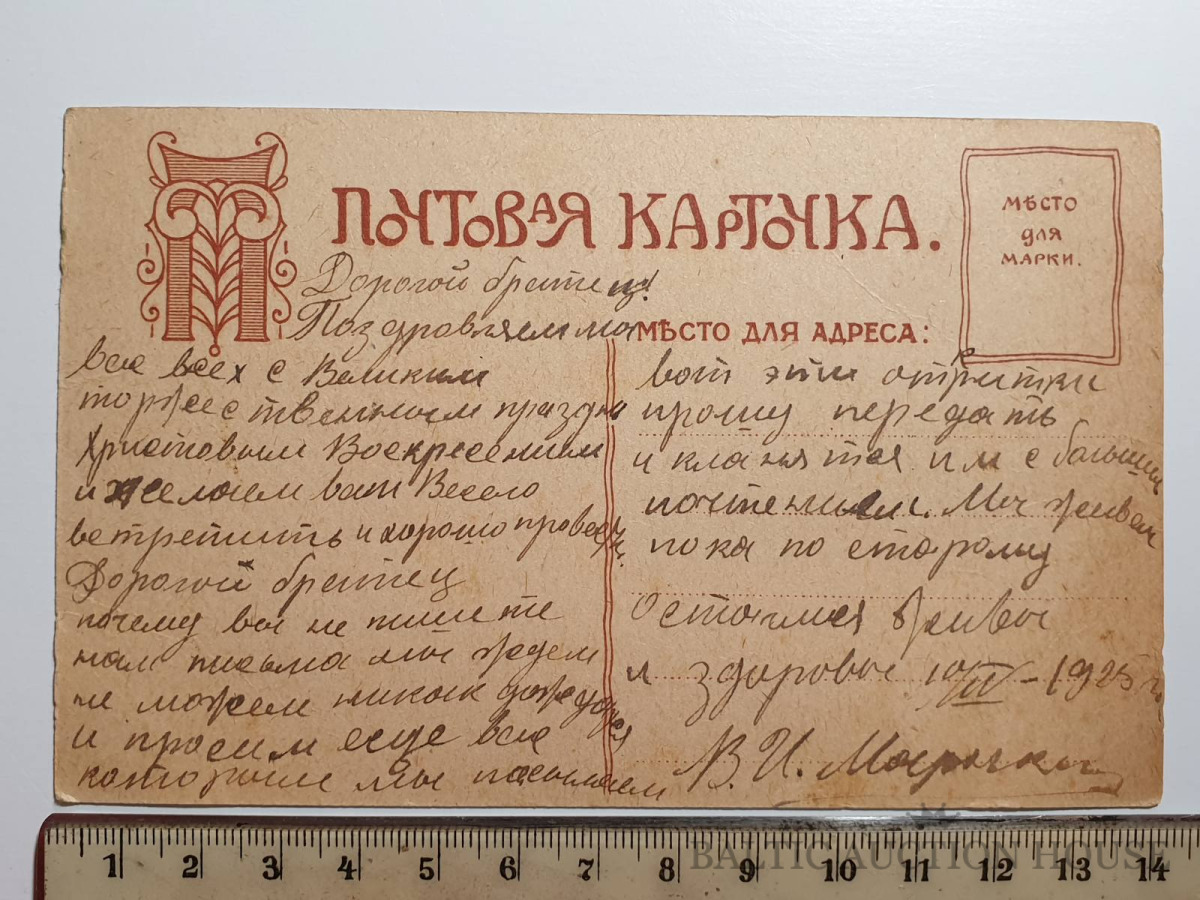 ПОЧТОВАЯ КАРТОЧКА.
МѢСТО
ДЛЯ
МАРКИ.
Дорогой братец!
Поздровляем мы
МѢСТО ДЛЯ АДРЕСА:
все всех с Великим
торжественным праздн
Христовым Воскресением
и желаем вам Весело
встретить и хорошо провести.
Дорогой братец
почему вы не пишите
нам письма мы ждем
не можем никак дождатся
и просим еще вас
которыим мы посылаем
вот эти открытки
прошу передать
и кланятся им с большим
почтением. Мы живем
пока по старому
Остаимся живы
и здоровы 10/IV-1925 г.
В. И.
1 2 3 4 5 6 7 8 9 10 11 12 13 14
BALTIC AUCTION HOUSE